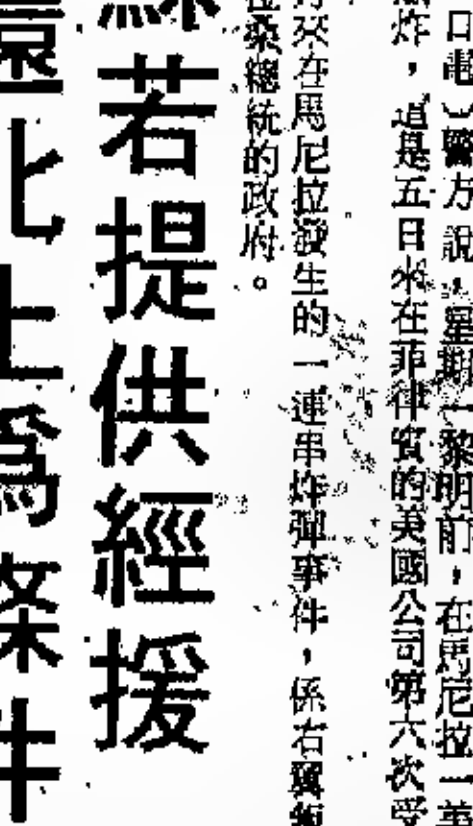 口電）警方說，星期一黎明前，在馬尼拉一美
炸，這是五日來在菲律賓的美國公司第六次受
來在馬尼拉發生的一連串炸彈事件，係右翼
桑總統的政府。
若提供經援
北上為條件